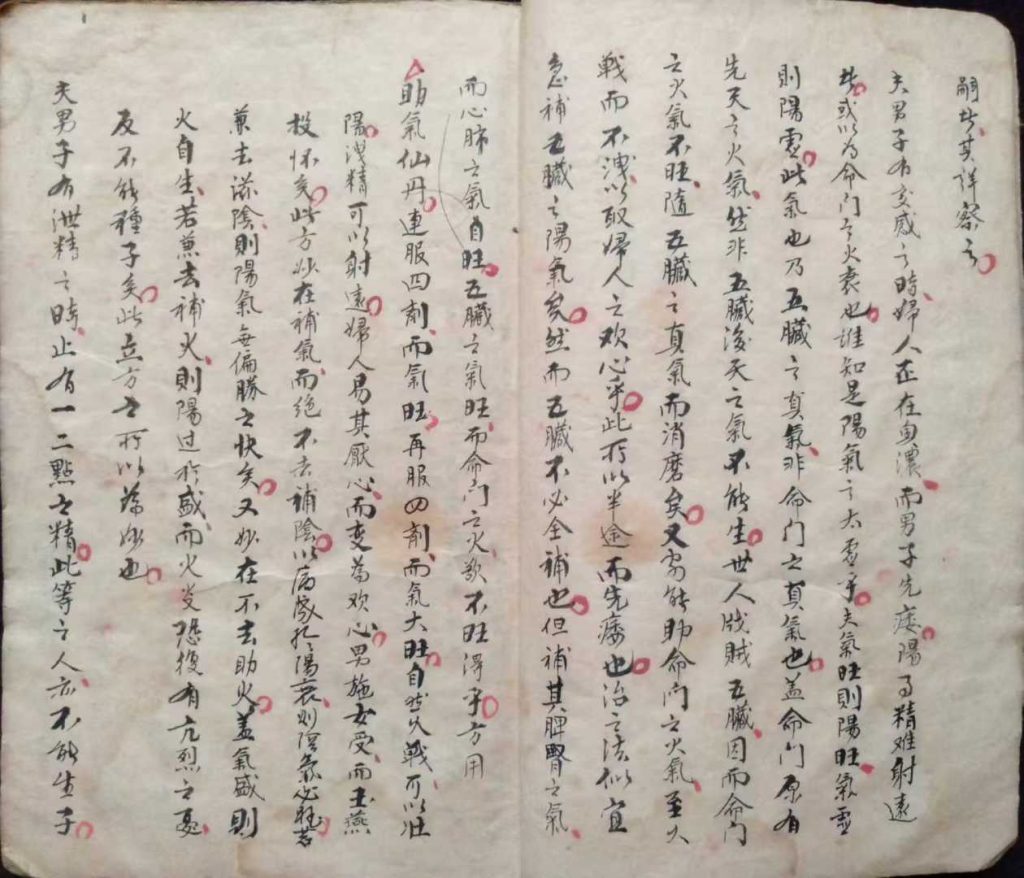 嗣者其詳察之
夫男子有交感之時婦人正在兴濃而男子先痿陽事精难射遠
者或以为命门之火衰也誰知是陽氣之太虚乎夫氣旺則陽旺氣虚
則陽虚此氣也乃五臟之真氣非命门之真氣也盖命门原有
先天之火氣然非五臟後天之氣不能生世人戕賊五臟因而命门
之火氣不旺隨五臟之真氣而消磨矣又安能助命门之火氣至久
戰而不洩以取婦人之欢心乎此所以半途而先痿也治之法似宜
急補五臟之陽氣矣然而五臟不必全補也但補其脾腎之氣
而心肺之氣自旺五臟之氣旺而命门之火欲不旺得乎方用
助氣仙丹連服四剤而氣旺再服四剤而氣大旺自然久戰可以壮
陽洩精可以射遠婦人易其厭心而变為欢心男施女受而玉燕
投怀矣此方妙在補氣而绝不去補陰以病家於陽衰则陰氣必旺若
兼去滋陰則陽氣無偏勝之快矣又妙在不去助火盖氣盛則
火自生若兼去補火則陽过於盛而火炎恐復有亢烈之憂
反不能種子矣此立方之所以為妙也
夫男子有泄精之時止有一二點之精此等之人亦不能生子